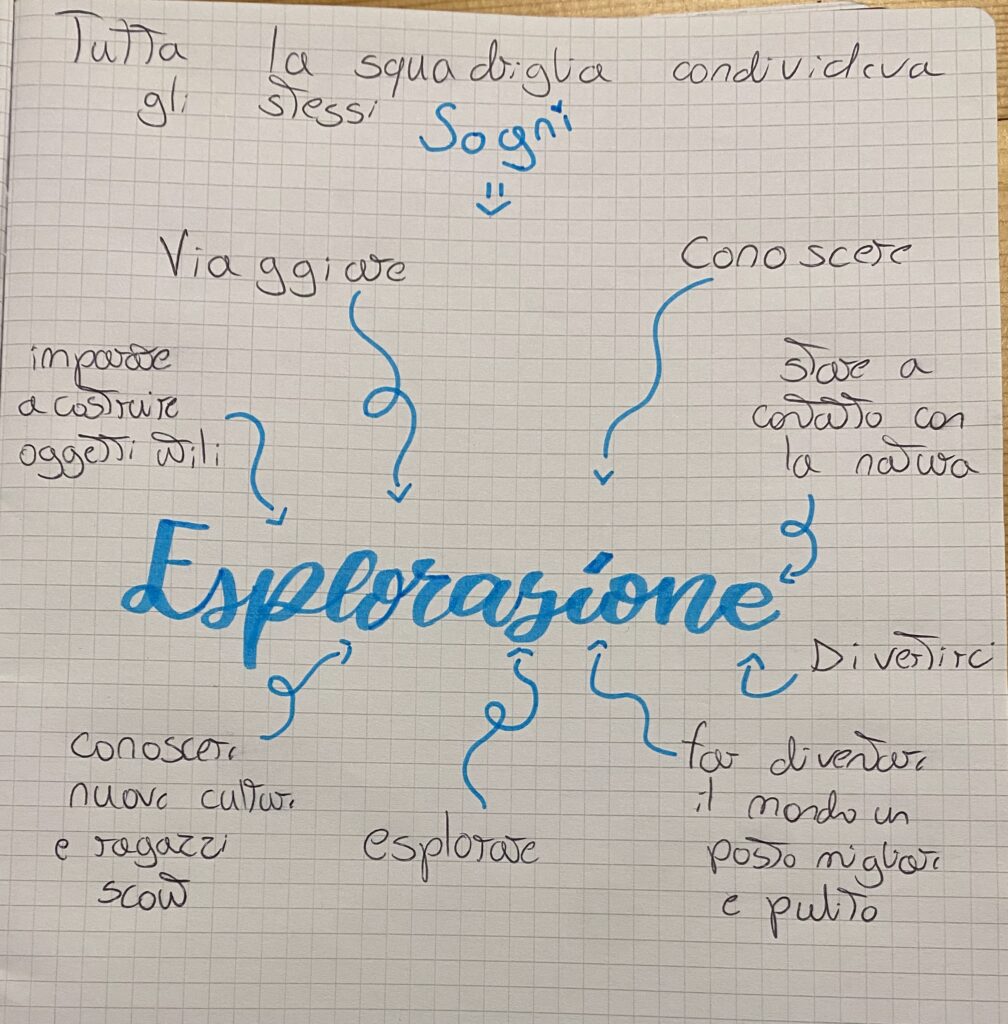 Tutta la squadriglia condivideva
gli stessi Sogni
Viaggiare
Conoscere
imparare
a costruire
oggetti utili
stare a
contatto con
la natura
Esplorazione
Divertirci
conoscere
nuove culture
e ragazzi
scout
esplorare
far diventare
il mondo un
posto migliore
e pulito